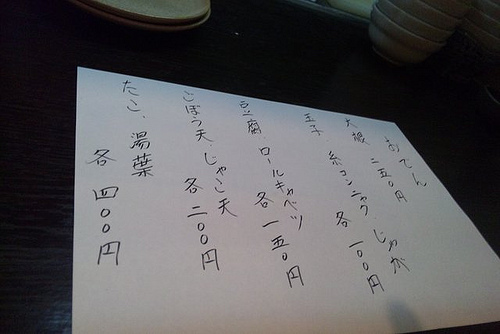 おでん
大根 二五〇円 じゃが
玉子 糸コンニャク 各 一〇〇円
豆腐 ロールキャベツ 各 一五〇円
ごぼう天 じゃこ天 各 二〇〇円
たこ、湯葉 各 四〇〇円